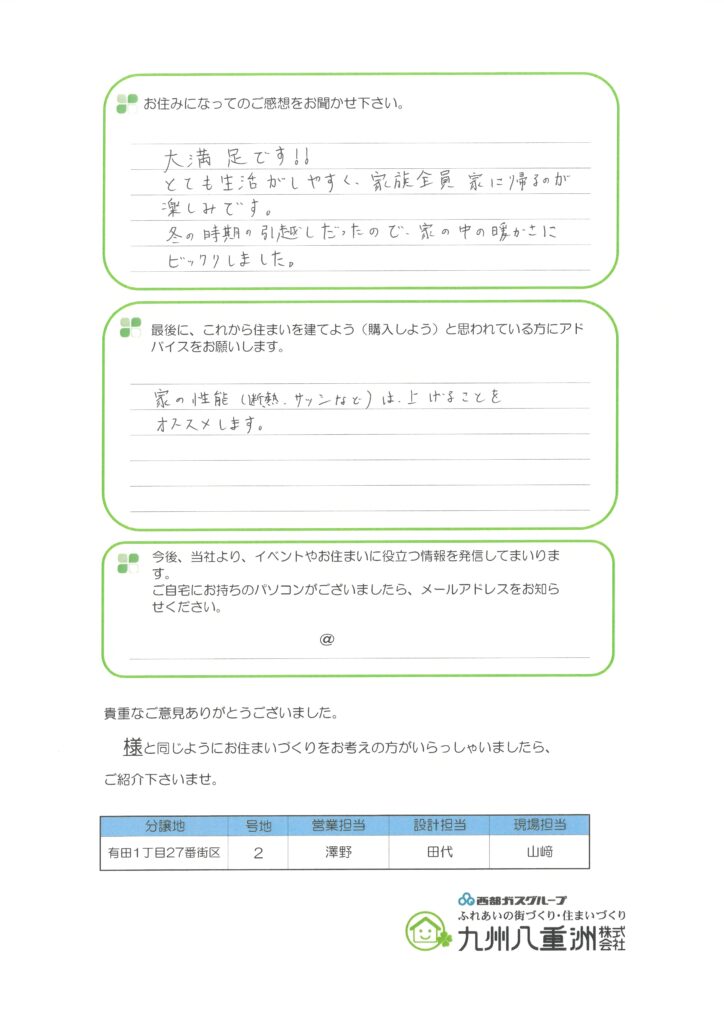 お住みになってのご感想をお聞かせ下さい。
大満足です!!
とても生活がしやすく、家族全員 家に帰るのが
楽しみです。
冬の時期の引越しだったので、家の中の暖かさに
ビックリしました。
最後に、これから住まいを建てよう（購入しよう）と思われている方にアド
バイスをお願いします。
家の性能（断熱、サッシなど）は、上げることを
オススメします。
今後、当社より、イベントやお住まいに役立つ情報を発信してまいりま
す。
ご自宅にお持ちのパソコンがございましたら、メールアドレスをお知ら
せください。
@
貴重なご意見ありがとうございました。
様と同じようにお住まいづくりをお考えの方がいらっしゃいましたら、
ご紹介下さいませ。
分譲地 号地 営業担当 設計担当 現場担当
有田1丁目27番街区 2 澤野 田代 山﨑
西部ガスグループ
ふれあいの街づくり・住まいづくり
九州八重洲株式会社